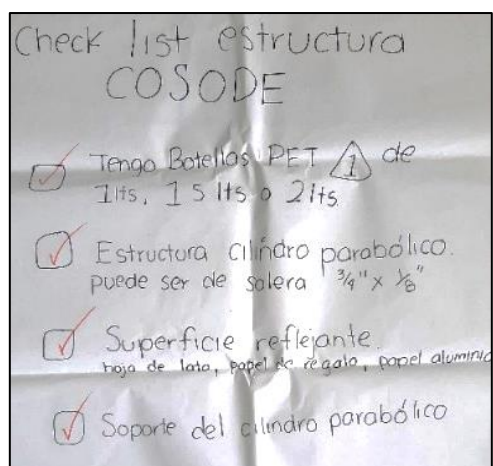 Check list estructura
COSODE
Tengo Botellas PET 1 de
1lts, 1 5 lts o 2lts.
Estructura cilindro parabólico.
puede ser de solera 3/4" x 1/8"
Superficie reflejante.
hoja de lata, papel de regalo, papel aluminio
Soporte del cilindro parabólico